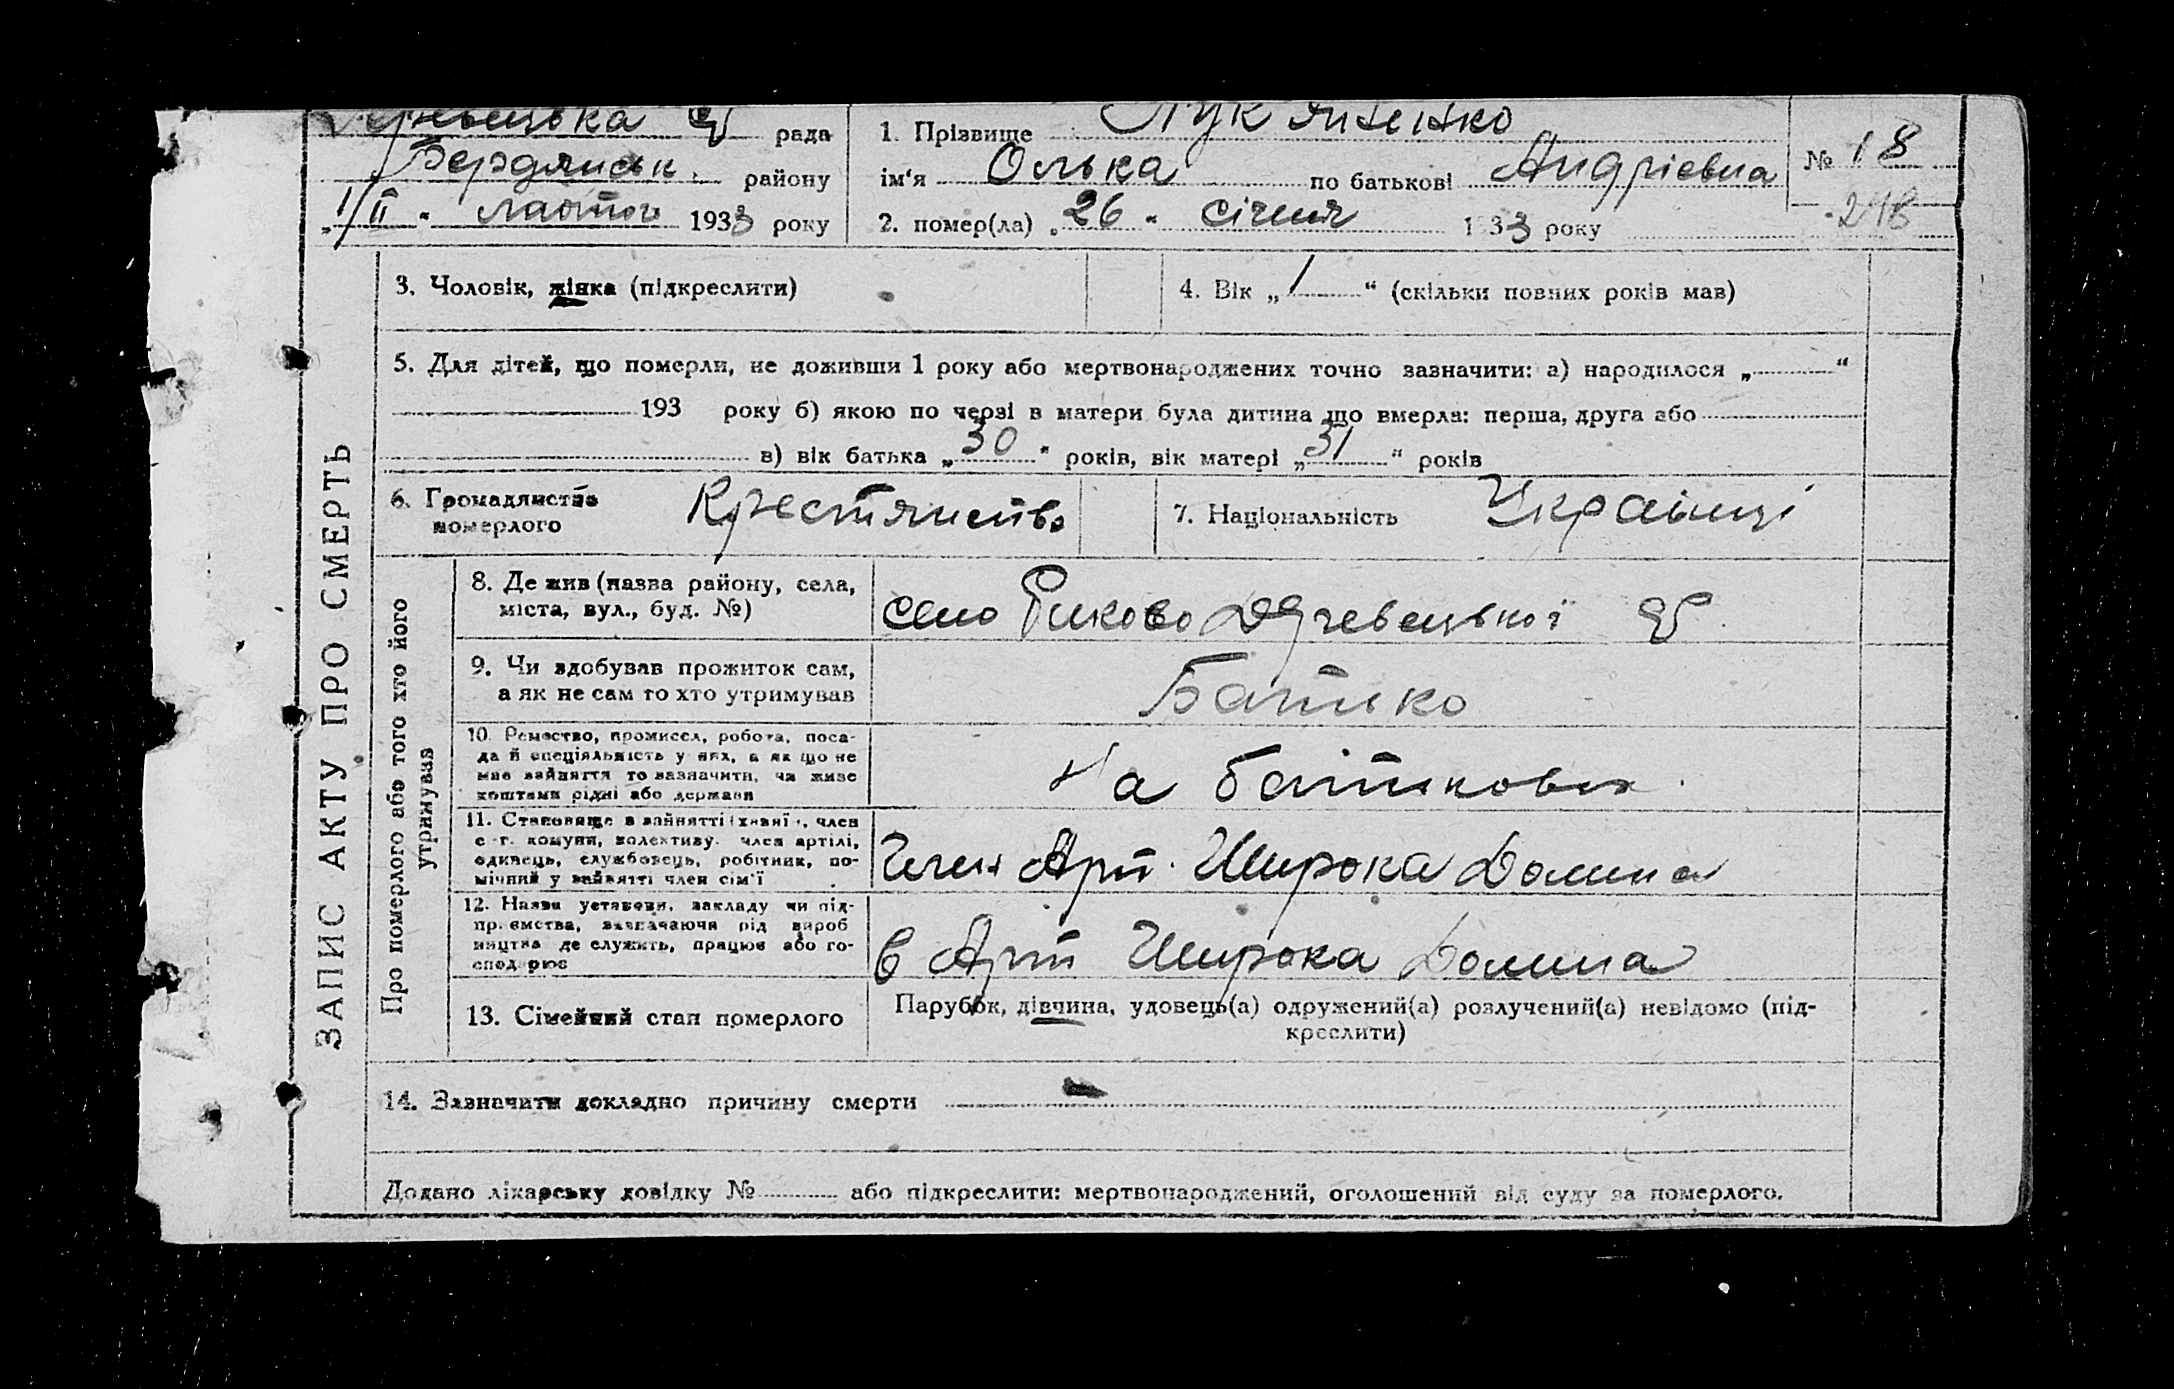 рада
Бердянськ. району
"1/II" лютого 1933 року
1. Прізвище Лук'яненко
ім'я Олька по батькові Андрієвна
2. помер(ла) "26" січня 1933 року
№ 18
248
ЗАПИС АКТУ ПРО СМЕРТЬ
3. Чоловік, жінка (підкреслити)
4. Вік „1“ (скільки повних років мав)
5. Для дітей, що померли, не доживши 1 року або мертвонароджених точно зазначити: а) народилося „ “
193 року б) якою по черзі в матери була дитина що вмерла: перша, друга або
в) вік батька „30“ років, вік матері „31“ років
6. Громадянство
померлого
Крестянство
7. Національність Українці
Про померлого або того хто його
утримував
8. Де жив (назва району, села,
міста, вул., буд. №)
село Риково
9. Чи здобував прожиток сам,
а як не сам то хто утримував
Батько
10. Ремество, промисел, робота, поса-
да й спеціяльність у них, а як що не
має зайняття то зазначити, чи живе
коштами рідні або держави
На батькових
11. Становище в зайнятті (хазяї , член
с.-г. комуни, колективу, член артілі,
одинець, службовець, робітник, по-
мічний у зайнятті член сім'ї
Член Арт. Широка Долина
12. Назва установи, закладу чи під-
приємства, зазначаючи рід вироб
ництва де служить, працює або го-
сподарює
в Арт Широка Долина
13. Сімейний стан померлого
Парубок, дівчина, удовець(а) одружений(а) розлучений(а) невідомо (під-
креслити)
14. Зазначити докладно причину смерти
Додано лікарську довідку № або підкреслити: мертвонароджений, оголошений від суду за померлого.